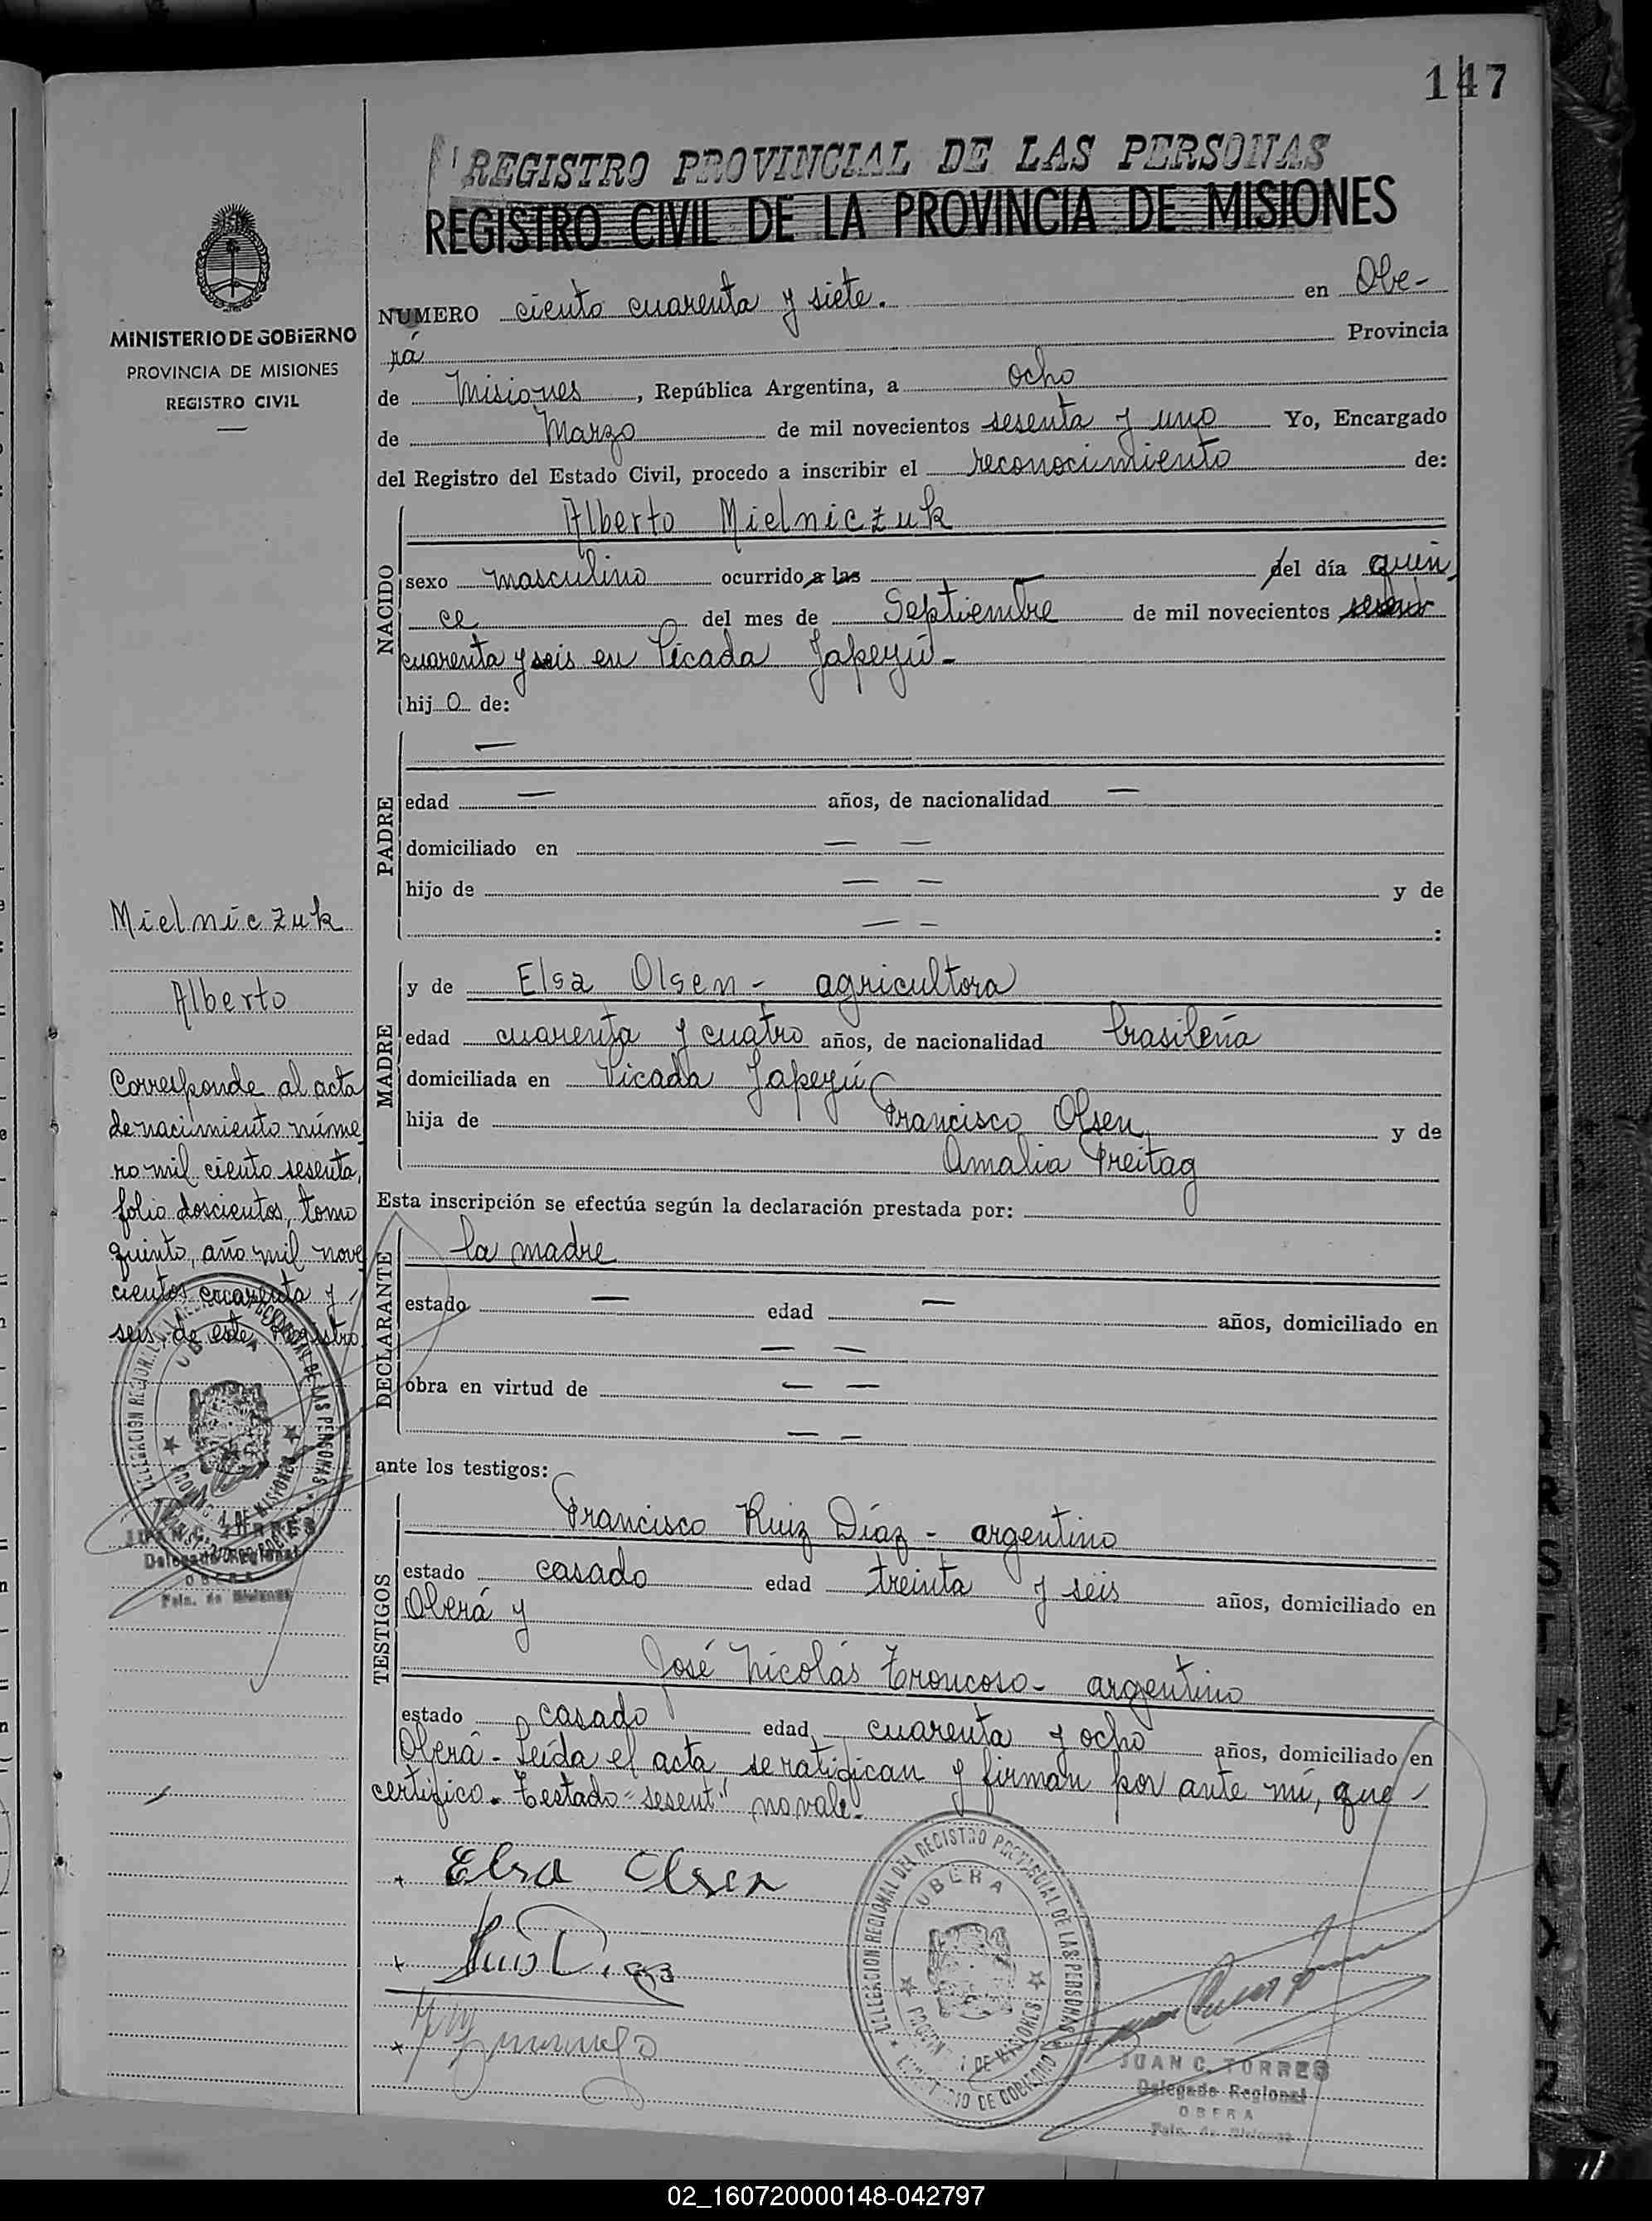 147
REGISTRO PROVINCIAL DE LAS PERSONAS
REGISTRO CIVIL DE LA PROVINCIA DE MISIONES
MINISTERIO DE GOBIERNO
PROVINCIA DE MISIONES
REGISTRO CIVIL
NUMERO ciento cuarenta y siete. en Obe-
rá Provincia
de Misiones, República Argentina, a ocho
de Marzo de mil novecientos sesenta y uno Yo, Encargado
del Registro del Estado Civil, procedo a inscribir el reconocimiento de:
NACIDO
Alberto Mielniczuk
sexo masculino ocurrido a las — del día quin
ce del mes de Septiembre de mil novecientos sesent
cuarenta y seis en Picada Japeyú-
hijo de:
PADRE
—
edad — años, de nacionalidad —
domiciliado en — —
hijo de — — y de
— — :
Mielniczuk
Alberto
Corresponde al acta
de nacimiento núme
ro mil ciento sesenta,
folio doscientos, tomo
quinto, año mil nove
cientos cuarenta y
seis, de este Registro
MADRE
y de Elsa Olsen - agricultora
edad cuarenta y cuatro años, de nacionalidad brasileña
domiciliada en Picada Japeyú
hija de Francisco Olsen y de
Amalia Freitag
Esta inscripción se efectúa según la declaración prestada por:
DECLARANTE
la madre
estado — edad — años, domiciliado en
— —
obra en virtud de — —
— —
ante los testigos:
TESTIGOS
Francisco Ruiz Díaz - argentino
estado casado edad treinta y seis años, domiciliado en
Oberá y
José Nicolás Troncoso - argentino
estado casado edad cuarenta y ocho años, domiciliado en
Oberá - Leída el acta se ratifican y firman por ante mí, que
certifico. Testado "sesent" no vale.
Elsa Olsen
Ruiz Diaz
DELEGACION REGIONAL DEL REGISTRO PROVINCIAL DE LAS PERSONAS
OBERA
PROVINCIA DE MISIONES
MINISTERIO DE GOBIERNO
JUAN C. TORRES
Delegado Regional
OBERA
Pcia. de Misiones
DELEGACION REGIONAL DEL REGISTRO PROVINCIAL DE LAS PERSONAS
OBERA
PROVINCIA DE MISIONES
MINISTERIO DE GOBIERNO
JUAN C. TORRES
Delegado Regional
OBERA
Pcia. de Misiones
02_160720000148-042797